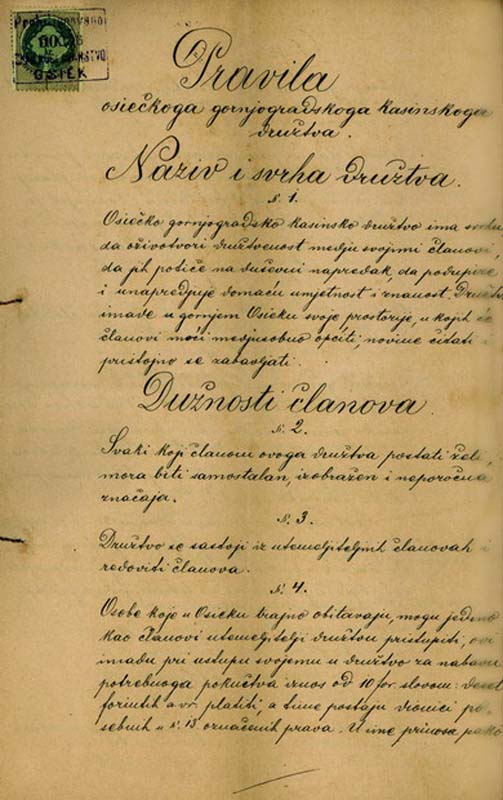 OSIEK
Pravila
osiečkoga gornjogradskoga kasinskoga
društva.
Naziv i svrha društva.
§. 1.
Osiečko gornjogradsko kasinsko društvo ima svrhu
da oživotvori društvenost medju svojimi članovi,
da jih potiče na duševni napredak, da podupire
i unapredjuje domaću umjetnost i znanost. Društvo
imade u gornjem Osieku svoje prostorije, u kojih će
članovi moći medjusobno općiti, novine čitati i
pristojno se zabavljati.
Dužnosti članova.
§. 2.
Svaki koji članom ovoga društva postati želi,
mora biti samostalan, izobražen i neporočna
značaja.
§. 3.
Društvo se sastoji iz utemeljiteljnih članovah i
redoviti članova.
§. 4.
Osobe koje u Osieku trajno obitavaju, mogu jedino
kao članovi utemeljitelji društvu pristupiti, ovi
imadu pri ustupu svojemu u društvo za nabavu
potrebnoga pokućtva iznos od 10 for. slovom: deset
forintih a. vr. platiti, a time postaju dionici po-
sebnih u §. 13. označenih prava. U ime prinosa pako